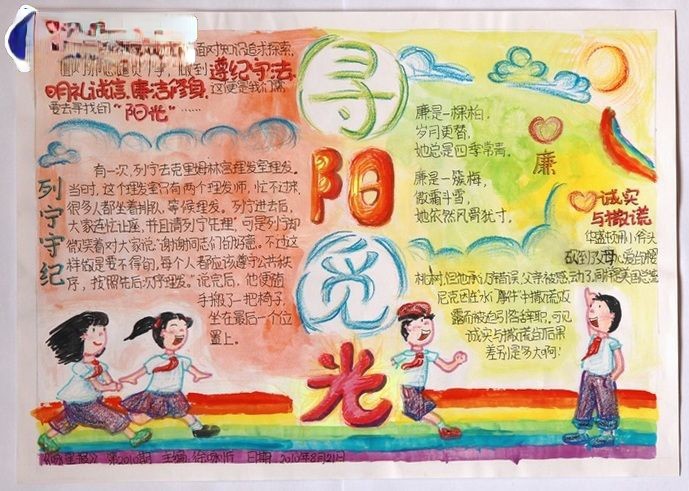 寻阳觅光
面对知识追求探索,
做到遵纪守法,
明礼诚信,廉洁修身,这便是我们需
要去寻找的“阳光”……
列宁守纪
有一次,列宁去克里姆林宫理发室理发。
当时,这个理发室只有两个理发师,忙不过来,
很多人都坐着排队,等候理发。列宁进去后,
大家连忙让座,并且请列宁先理,可是列宁却
微笑着对大家说:“谢谢同志们的好意。不过这
样做是要不得的,每个人都应该遵守公共秩
序,按照先后次序理发。”说完后,他便随
手搬了一把椅子,
坐在最后一个位
置上。
廉
廉是一棵柏,
岁月更替,
她总是四季常青。
廉是一簇梅,
傲霜斗雪,
她依然风骨犹寸,
诚实
与撒谎
华盛顿用小斧头
砍到了父母心爱的樱
桃树,但他承认了错误,父亲被感动了,而作美国总统
尼克因在水门事件中撒谎败
露而被迫引咎辞职。可见
诚实与撒谎的后果
差别是多大啊!
第2010期 主编: 日期:2010年8月21日